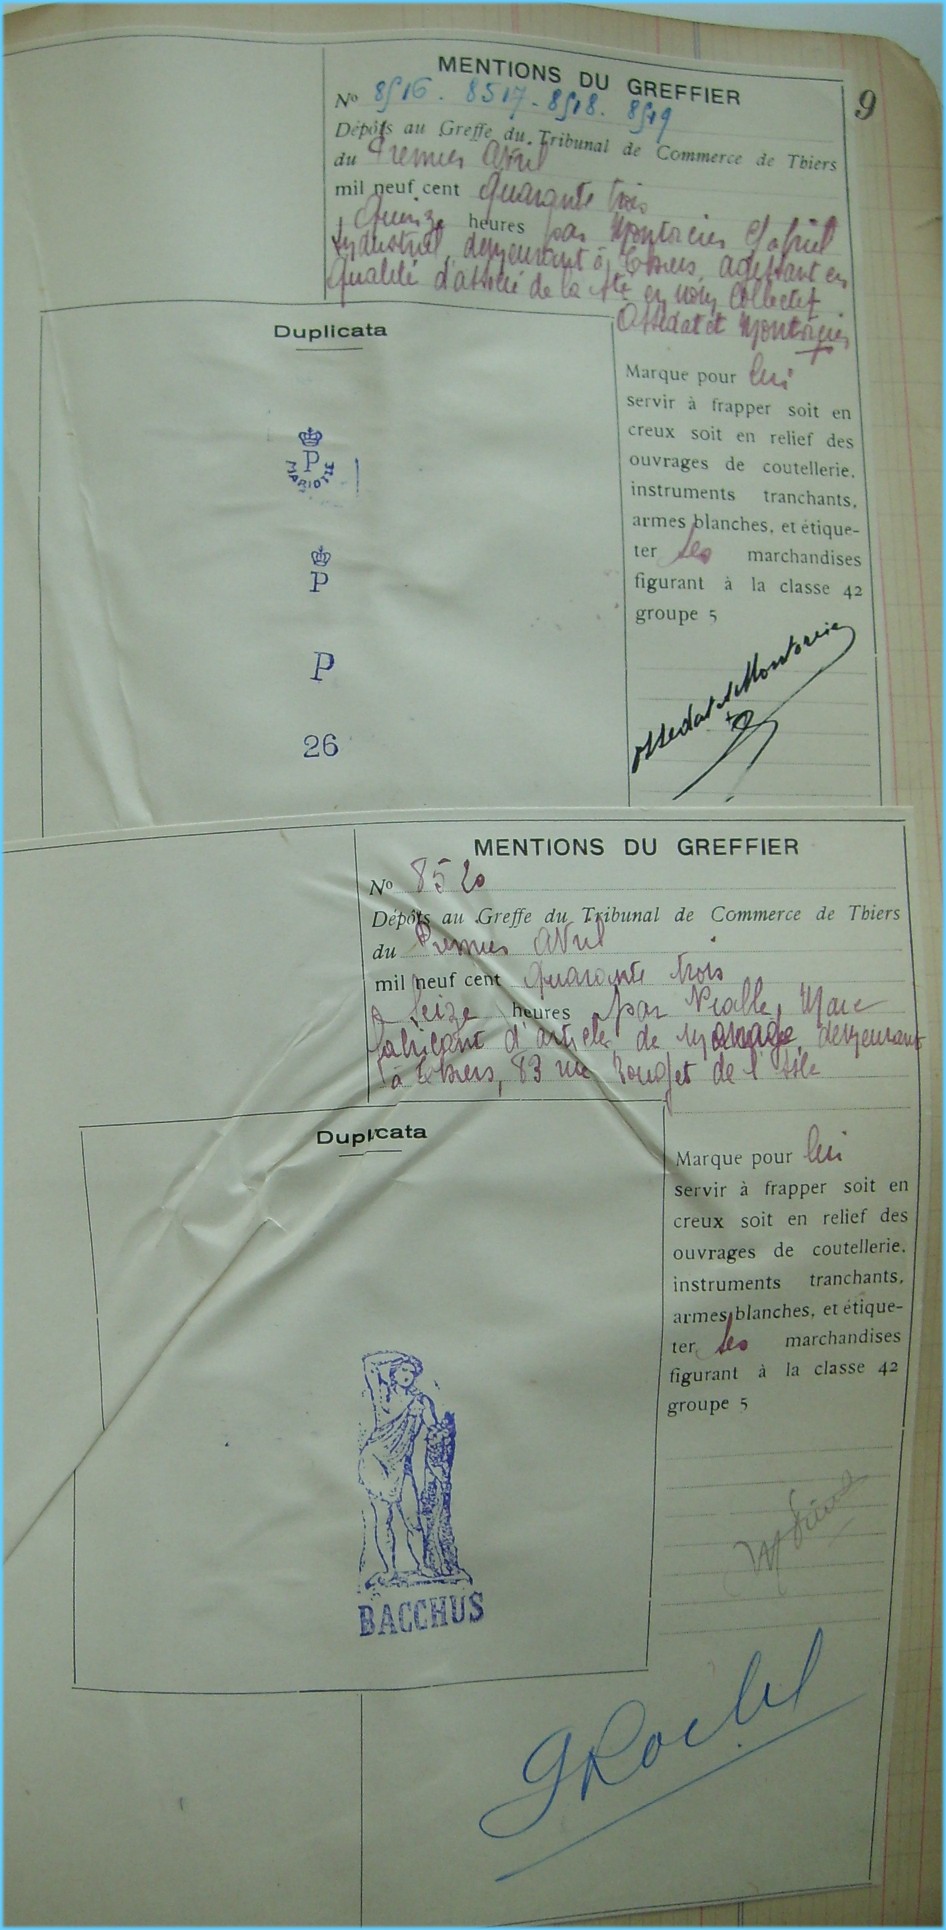 9
MENTIONS DU GREFFIER
No 8516. 8517-8518. 8519
Dépôts au Greffe du Tribunal de Commerce de Thiers
du Premier Avril
mil neuf cent quarante trois
Quinze heures par Montorcier Gabriel
Industriel, demeurant à Thiers, agissant en
qualité d'associé de la Sté en nom Collectif
Ossedat et Montorcier
Duplicata
P
MARIOTTE
P
P
26
Marque pour lui
servir à frapper soit en
creux soit en relief des
ouvrages de coutellerie,
instruments tranchants,
armes blanches, et étique-
ter ses marchandises
figurant à la classe 42
groupe 5
Ossedat et Montorcier
MENTIONS DU GREFFIER
No 8520
Dépôts au Greffe du Tribunal de Commerce de Thiers
du Premier Avril
mil neuf cent quarante trois
à Seize heures par Vialle, Marc
fabricant d'articles de ménage, demeurant
à Thiers, 83 rue Rouget de l'Isle
Duplicata
BACCHUS
Marque pour lui
servir à frapper soit en
creux soit en relief des
ouvrages de coutellerie.
instruments tranchants,
armes blanches, et étique-
ter ses marchandises
figurant à la classe 42
groupe 5